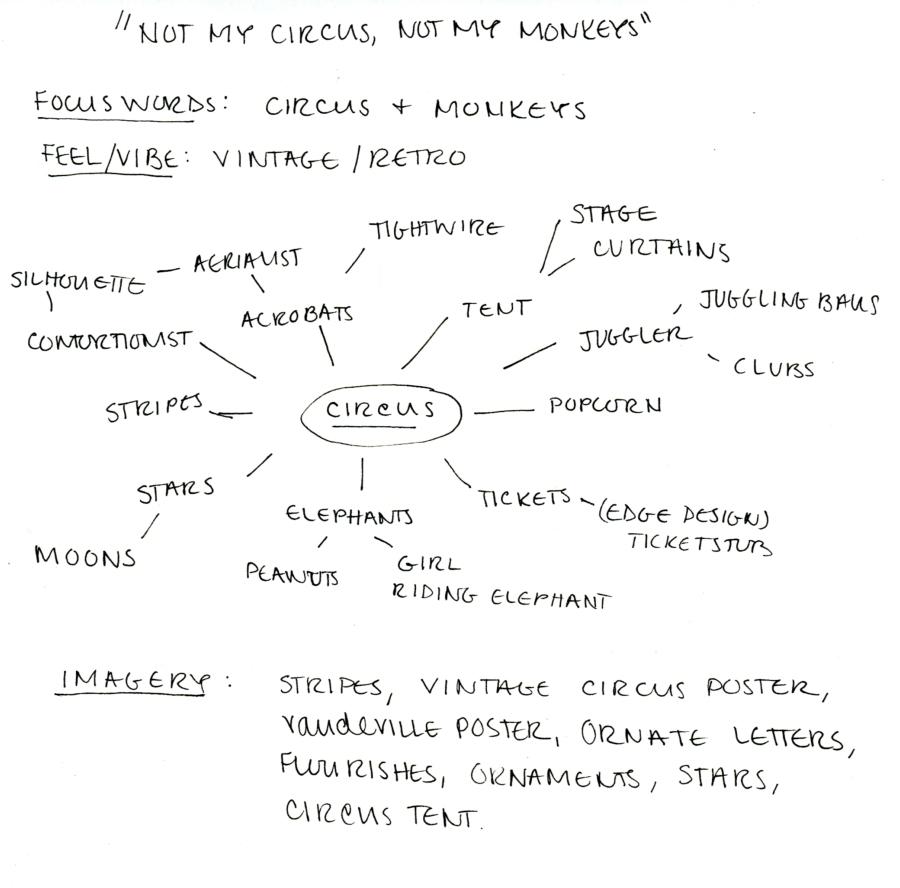 "NOT MY CIRCUS, NOT MY MONKEYS"
FOCUS WORDS: CIRCUS + MONKEYS
FEEL/VIBE: VINTAGE / RETRO
STAGE
TIGHTWIRE
CURTAINS
AERIALIST
SILHOUETTE
JUGGLING BALLS
TENT
ACROBATS
JUGGLER
CONTORTIONIST
CLUBS
STRIPES
CIRCUS
POPCORN
STARS
TICKETS
(EDGE DESIGN)
TICKETSTUB
ELEPHANTS
MOONS
PEANUTS
GIRL
RIDING ELEPHANT
IMAGERY: STRIPES, VINTAGE CIRCUS POSTER,
VAUDEVILLE POSTER, ORNATE LETTERS,
FLOURISHES, ORNAMENTS, STARS,
CIRCUS TENT.